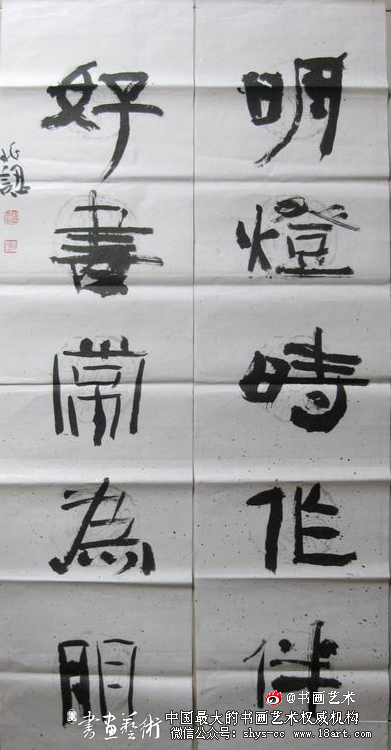 明燈時作伴
好書常為朋
@书画艺术
書畫藝術
中国最大的书画艺术权威机构
微信公众号：shys-c www.18art.com